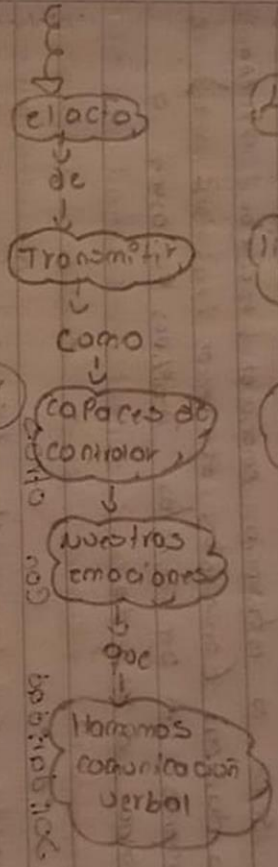 el acto
de
Transmitir
como
capaces de
controlar
Nuestros
emociones
que
Hamamos
comunicacion
verbal